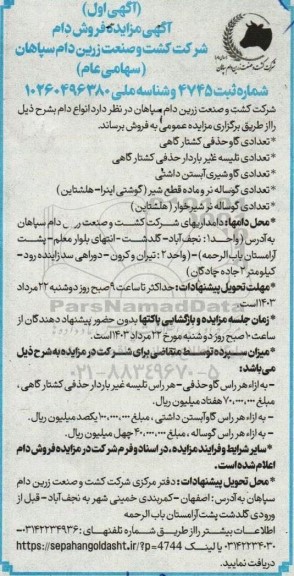 (آگهی اول)
آگهی مزایده فروش دام
شرکت کشت و صنعت زرین دام سپاهان
(سهامی عام)
شماره ثبت ۴۷۴۵ و شناسه ملی ۱۰۲۶۰۴۹۶۳۸۰
شرکت کشت و صنعت زرین دام سپاهان در نظر دارد انواع دام بشرح ذیل
را از طریق برگزاری مزایده عمومی به فروش برساند.
* تعدادی گاو حذفی کشتار گاهی
* تعدادی تلیسه غیر باردار حذفی کشتار گاهی
* تعدادی گاو شیری آبستن داشتی
* تعدادی گوساله نر و ماده قطع شیر (گوشتی اینرا-هلشتاین)
* تعدادی گوساله نر شیرخوار (هلشتاین)
* محل دامها: دامداریهای شرکت کشت و صنعت زرین دام سپاهان
به آدرس (واحد ۱: نجف آباد- گلدشت- انتهای بلوار معلم- پشت
آرامستان باب الرحمه) - (واحد ۲: تیران و کرون - دوراهی سد زاینده رود -
کیلومتر ۲ جاده چادگان)
* مهلت تحویل پیشنهادات: حداکثر تا ساعت ۹ صبح روز دوشنبه ۲۲ مرداد
۱۴۰۳ است.
* زمان جلسه مزایده و بازگشایی پاکتها بدون حضور پیشنهاد دهندگان از
ساعت ۱۰ صبح روز دوشنبه مورخ ۲۲ مرداد ۱۴۰۳ است.
* میزان سپرده توسط متقاضی برای شرکت در مزایده به شرح ذیل
می باشد:
- به ازاء هر راس گاو حذفی - هر راس تلیسه غیر باردار حذفی کشتار گاهی،
مبلغ ۷۰.۰۰۰.۰۰۰ هفتاد میلیون ریال.
- به ازاء هر راس گاو آبستن داشتی، مبلغ ۱۰۰.۰۰۰.۰۰۰ یکصد میلیون ریال.
- به ازاء هر راس گوساله، مبلغ ۴۰.۰۰۰.۰۰۰ چهل میلیون ریال.
* سایر شرایط و فرایند مزایده، در اسناد و فرم شرکت در مزایده فروش دام
اعلام شده است.
* محل تحویل پیشنهادات: دفتر مرکزی شرکت کشت و صنعت زرین دام
سپاهان به آدرس: اصفهان - کمربندی خمینی شهر به نجف آباد - قبل از
ورودی گلدشت پشت آرامستان باب الرحمه
اطلاعات بیشتر را از طریق شماره تلفنهای: ۰۳۱۴۲۲۳۴۹۳۶-
۰۳۱۴۲۲۳۴۰۳۰ یا لینک https://sepahangoldasht.ir/?p=4744
دریافت نمایید.
ParsNamadData
۰۲۱-۸۸۳۴۹۶۷۰-۵